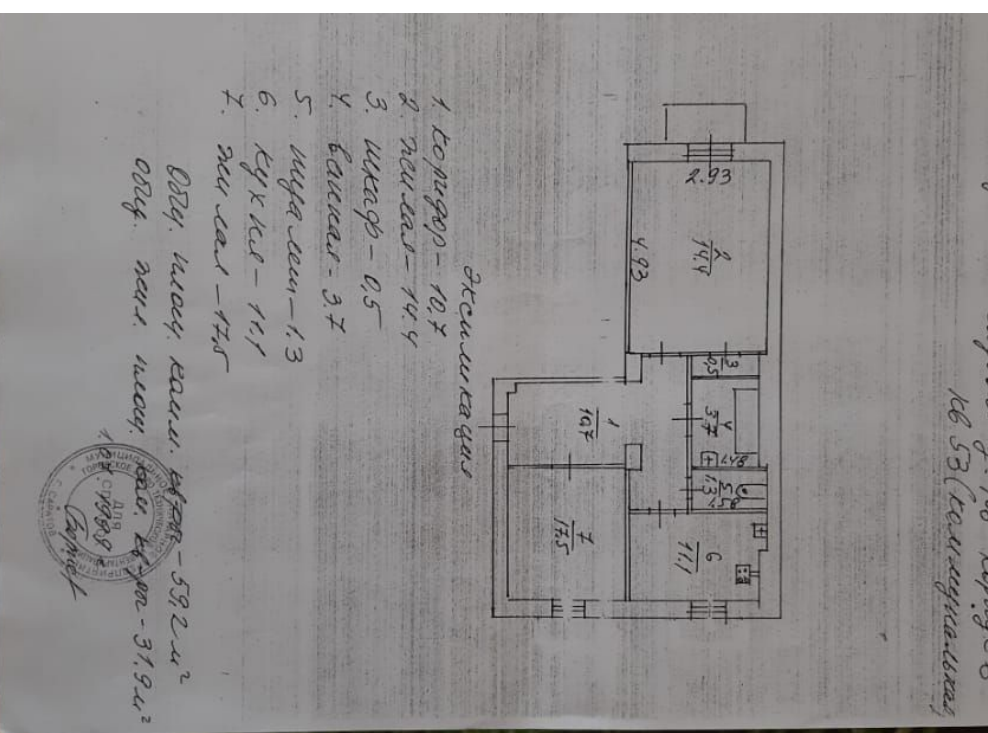 кв 53 (коммунальная)
2.93
2
14.4
4.93
3
0,5
4
3.7
1.48
5
1.3
1.58
1
10,7
6
11.1
7
17.5
Экспликация
1. коридор - 10,7
2. жилая - 14.4
3. шкаф - 0,5
4. ванная - 3.7
5. туалет - 1.3
6. кухня - 11,1
7. жилая - 17,5
Общ. площ. комм. кв-ры - 59,2 м²
общ. жил. площ. ком. кв-ры - 31.9 м²
ДЛЯ
Г. САРАТОВ